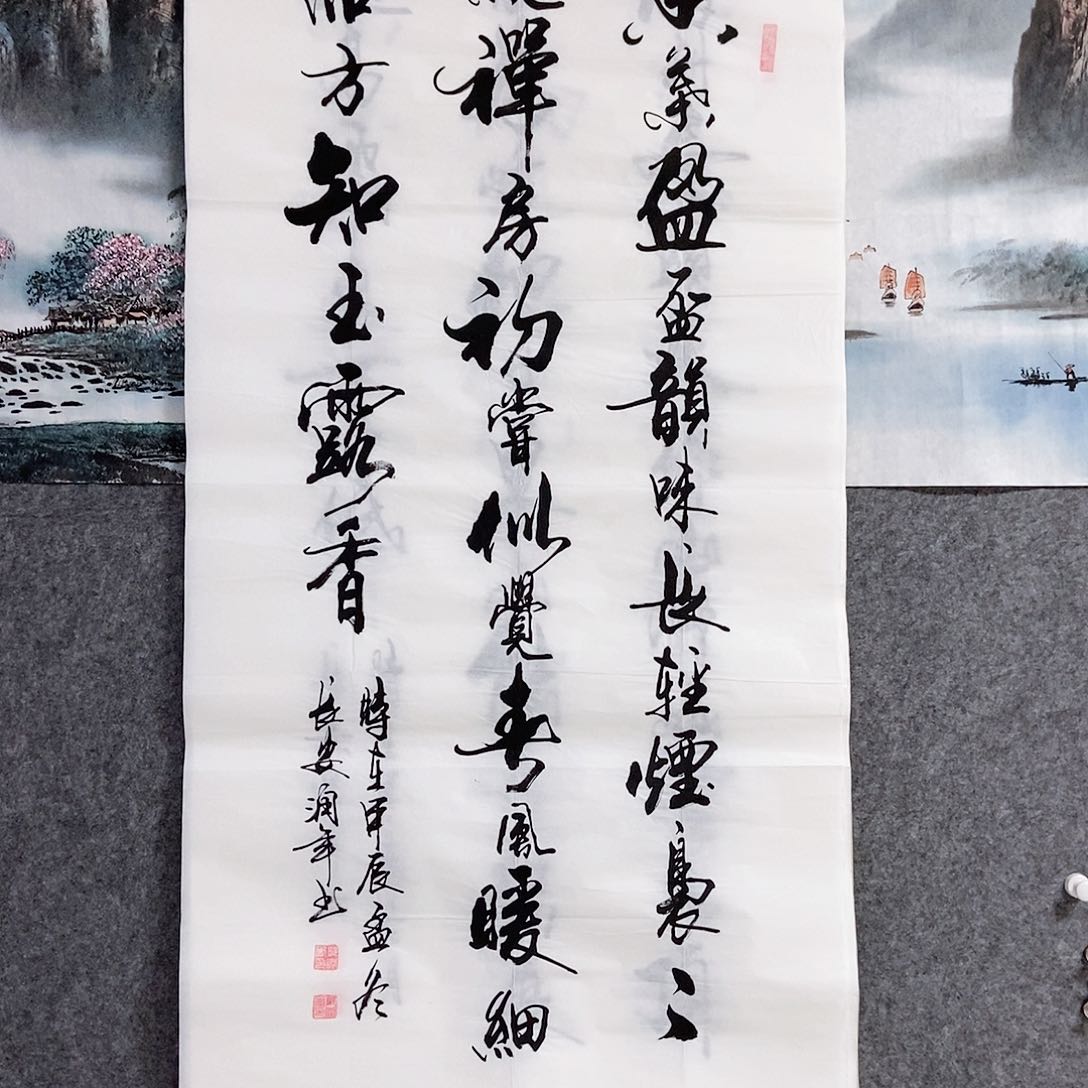 葉盈盃韻味長輕煙裊々
禪房初嘗似覺春風暖細
方知玉露香
時在甲辰孟冬
長安潤年书